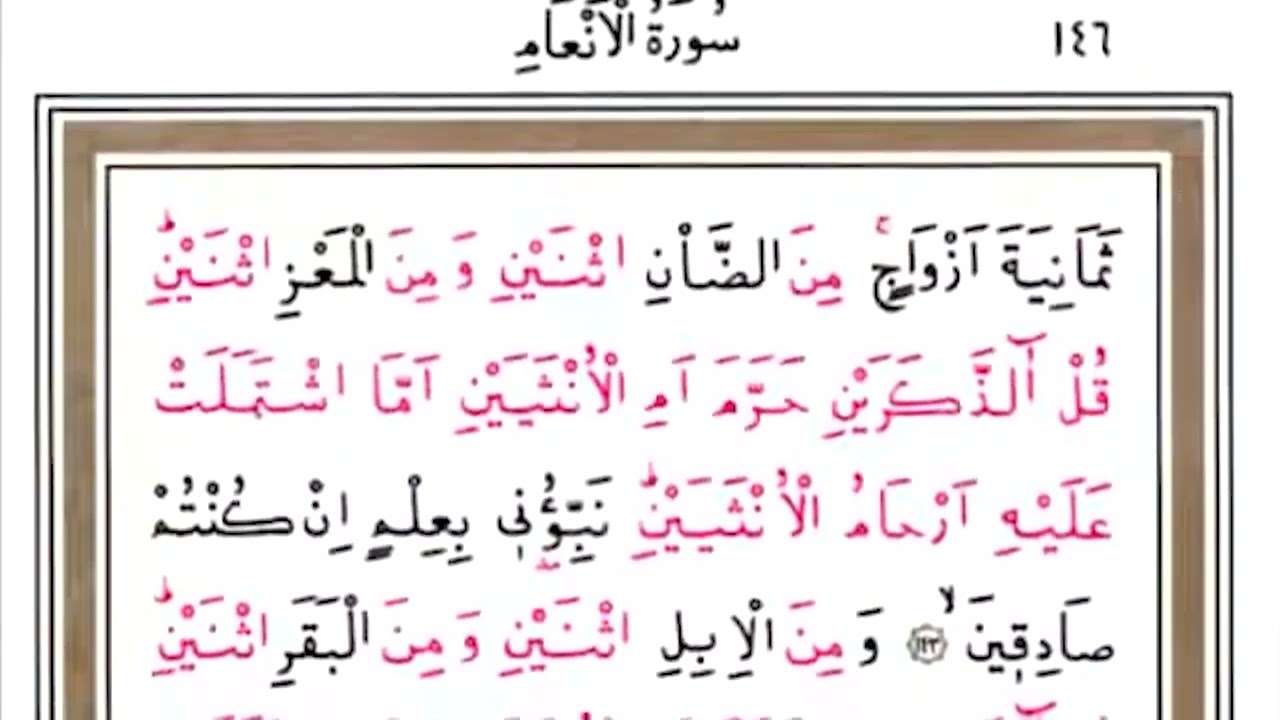 ١٤٦
سُورَةُ الْاَنْعَامِ
ثَمَانِيَةَ اَزْوَاجٍۚ مِنَ الضَّاْنِ اثْنَيْنِ وَ مِنَ الْمَعْزِ اثْنَيْنِۜ
قُلْ آٰلذَّكَرَيْنِ حَرَّمَ اَمِ الْاُنْثَيَيْنِ اَمَّا اشْتَمَلَتْ
عَلَيْهِ اَرْحَامُ الْاُنْثَيَيْنِۜ نَبِّؤُ۫ن۪ي بِعِلْمٍ اِنْ كُنْتُمْ
صَادِق۪ينَۙ ﴿١٤٣﴾ وَ مِنَ الْاِبِلِ اثْنَيْنِ وَ مِنَ الْبَقَرِ اثْنَيْنِۜ